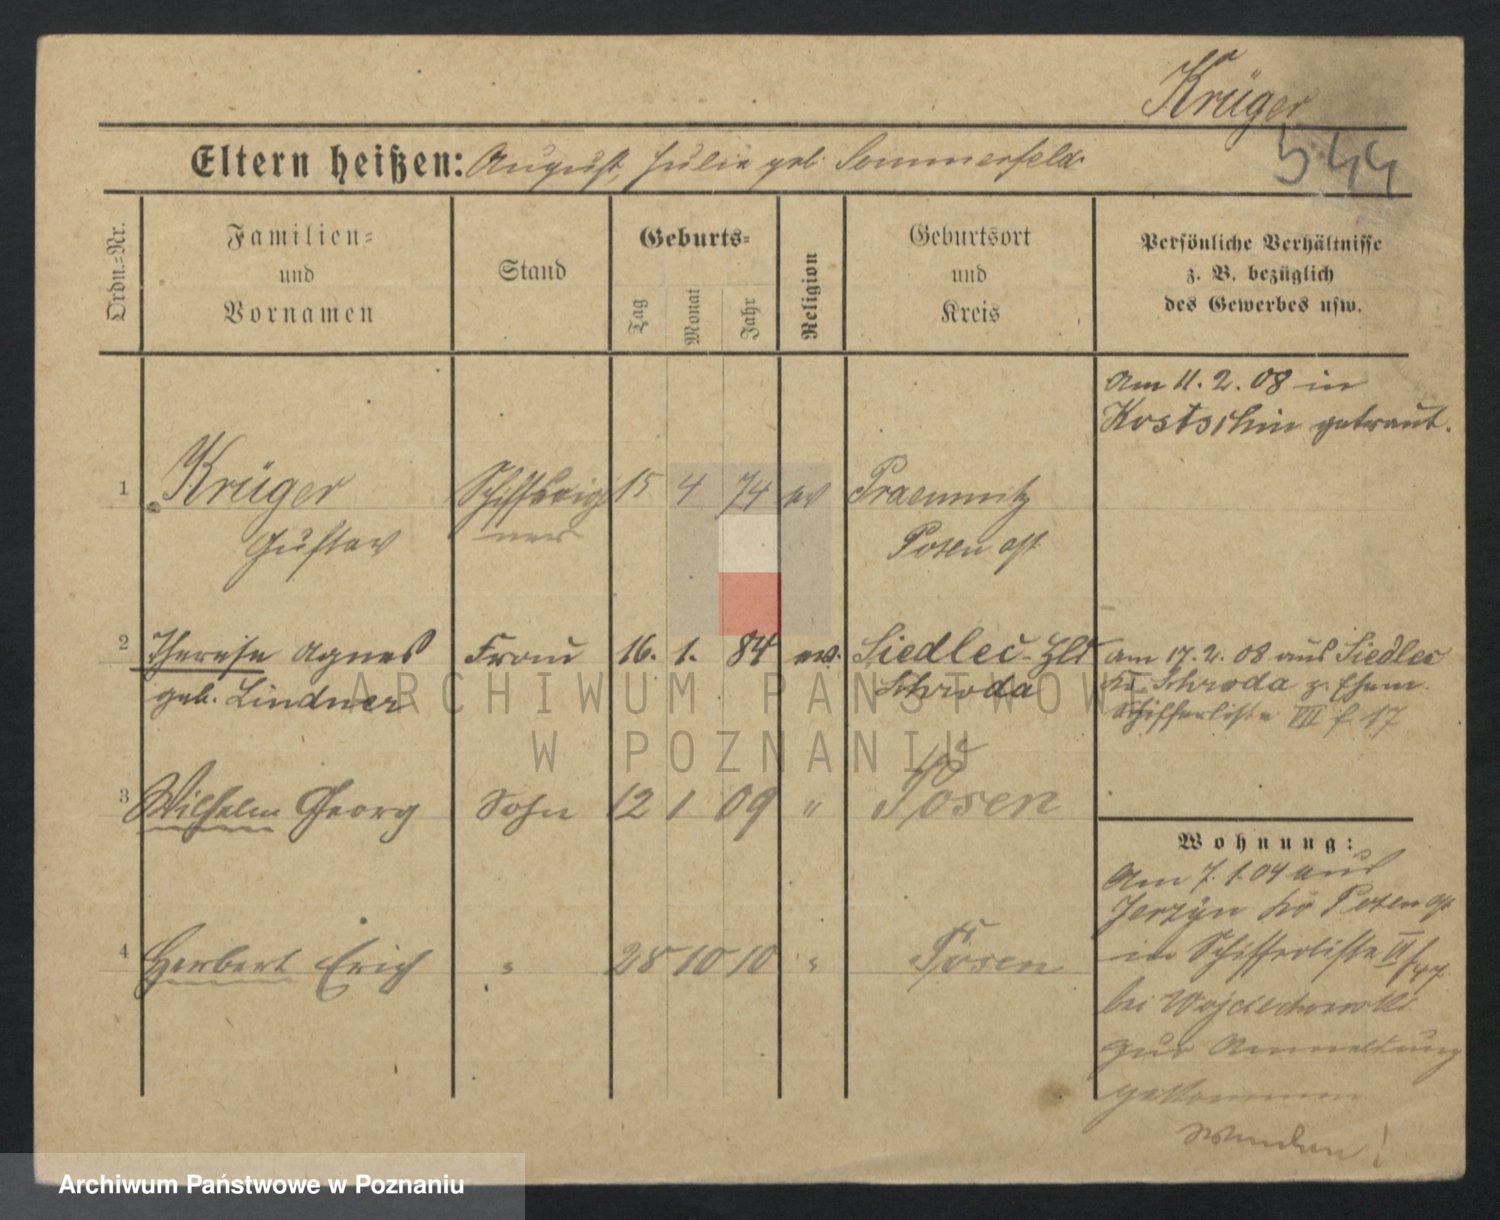 Krüger
544
Eltern heißen: August, Julie geb. Sommerfeld
Ordn.=Nr.
Familien=
und
Vornamen
Stand
Geburts=
Tag
Monat
Jahr
Religion
Geburtsort
und
Kreis
Persönliche Verhältnisse
z. B. bezüglich
des Gewerbes usw.
Am 11. 2. 08 in
Kostschin getraut.
1 Krüger 15 4 74 ev
Gustav Posen Ost
2 Therese Agnes Frau 16. 1. 84 ev. Siedlec
geb. Lindner Schroda
am 17. 2. 08 aus Siedlec
Kr. Schroda z. Ehem.
Schifferliste VII f. 17
3 Wilhelm Georg Sohn 12 1 09 " Posen
4 Herbert Erich " 28 10 10 " Posen
Wohnung:
Am 7. 1. 04 aus
Jerzyn Kr Posen Ost
in Schifferliste
bei
zur Anmeldung
gekommen
wenden!
ARCHIWUM PAŃSTWOWE
W POZNANIU
Archiwum Państwowe w Poznaniu